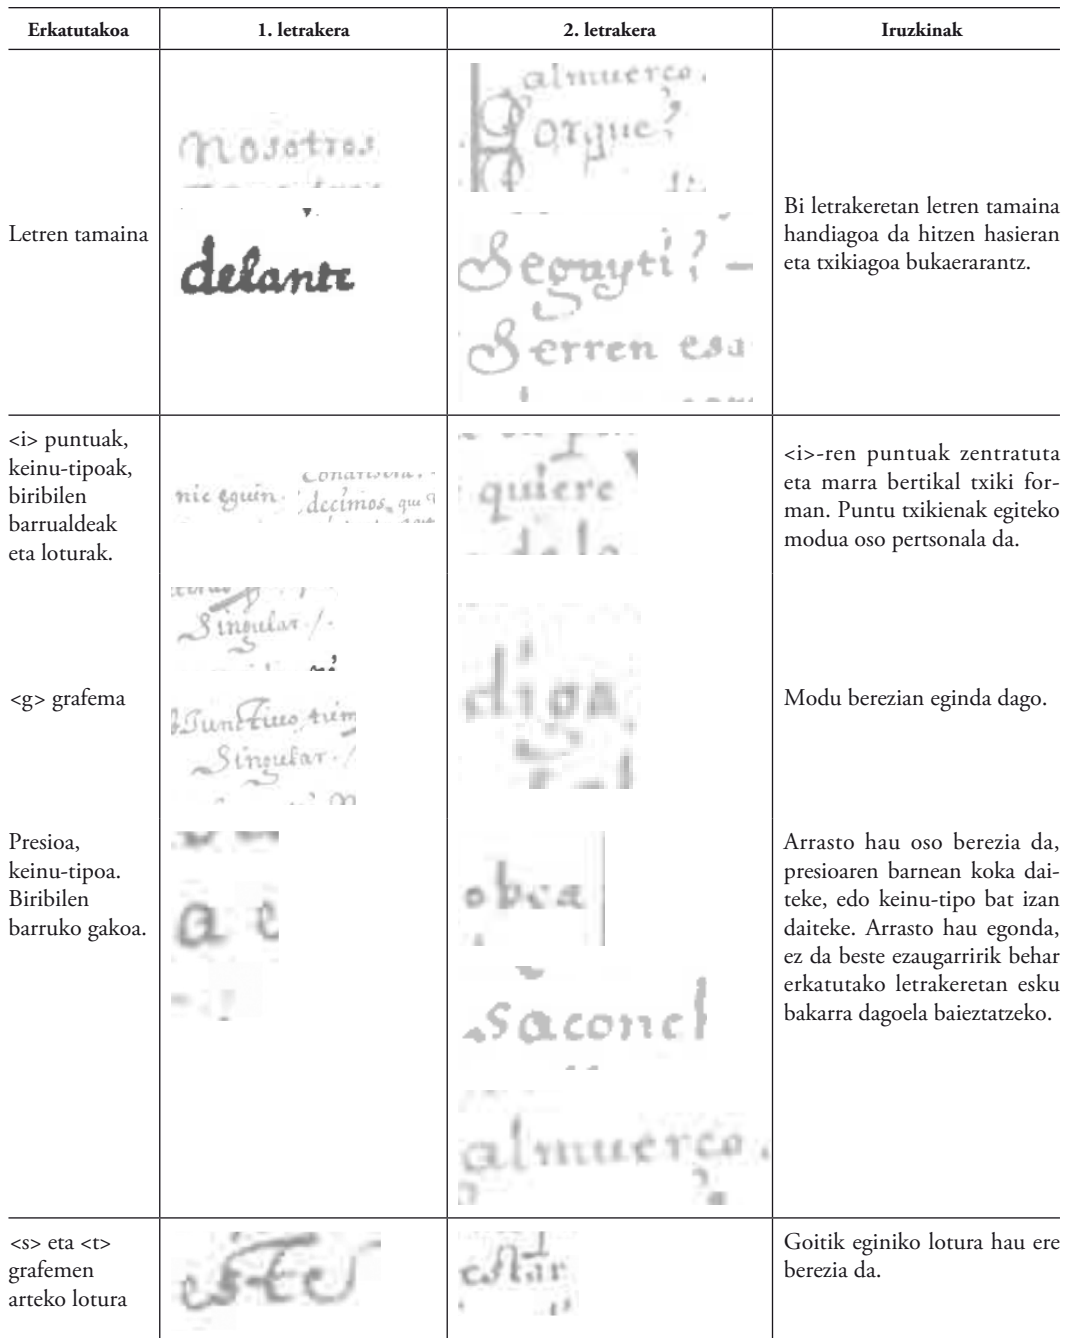 Erkatutakoa 1. letrakera 2. letrakera Iruzkinak
Letren tamaina
nosotros
delante
almuerço.
orque?
Segayti? –
Serren esa
Bi letrakeretan letren tamaina
handiagoa da hitzen hasieran
eta txikiagoa bukaerarantz.
<i> puntuak,
keinu-tipoak,
biribilen
barrualdeak
eta loturak.
nic eguin.
decimos, que
quiere
<i>-ren puntuak zentratuta
eta marra bertikal txiki for-
man. Puntu txikienak egiteko
modua oso pertsonala da.
<g> grafema
Singular /.
Singular. /
diga
Modu berezian eginda dago.
Presioa,
keinu-tipoa.
Biribilen
barruko gakoa.
a e
obea
saconel
almuerço.
Arrasto hau oso berezia da,
presioaren barnean koka dai-
teke, edo keinu-tipo bat izan
daiteke. Arrasto hau egonda,
ez da beste ezaugarririk behar
erkatutako letrakeretan esku
bakarra dagoela baieztatzeko.
<s> eta <t>
grafemen
arteko lotura
este
estar
Goitik eginiko lotura hau ere
berezia da.